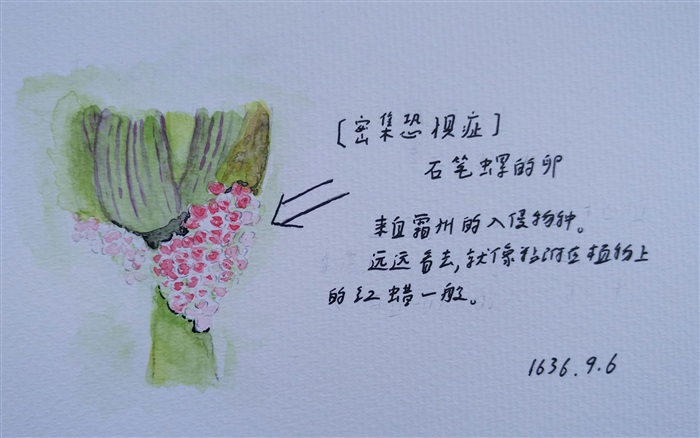 [密集恐惧症]
石笔螺的卵
来自霜州的入侵物种。
远远看去,就像粘附在植物上
的红蜡一般。
1636.9.6